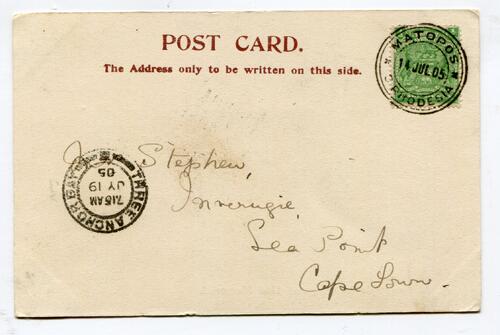 POST CARD.
The Address only to be written on this side.
MATOPOS
14 JUL 05
RHODESIA
Stephen,
Inverugie,
Sea Point
Cape Town.
THREE ANCHOR BAY
7.15 AM
JY 19
05